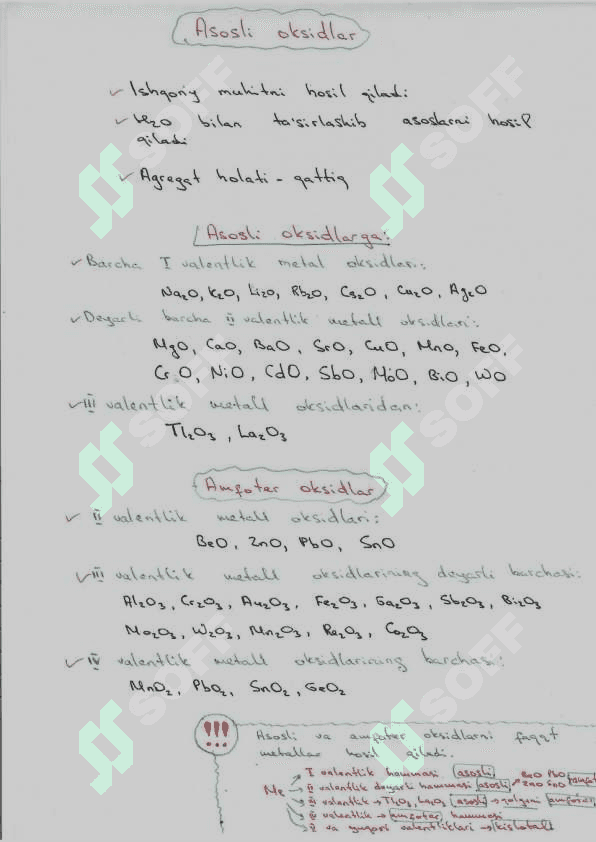 Asosli oksidlar
✓ Ishqoriy muhitni hosil qiladi
✓ H₂O bilan ta'sirlashib asoslarni hosil
qiladi
✓ Agregat holati - qattiq
Asosli oksidlarga:
✓ Barcha I valentlik metal oksidlari:
Na₂O, K₂O, Li₂O, Rb₂O, Cs₂O, Cu₂O, Ag₂O
✓ Deyarli barcha II valentlik metall oksidlari:
MgO, CaO, BaO, SrO, CuO, MnO, FeO,
CrO, NiO, CdO, SbO, MoO, BiO, WO
✓ III valentlik metall oksidlaridan:
Tl₂O₃, La₂O₃
Amfoter oksidlar
✓ II valentlik metall oksidlari:
BeO, ZnO, PbO, SnO
✓ III valentlik metall oksidlarining deyarli barchasi:
Al₂O₃, Cr₂O₃, Au₂O₃, Fe₂O₃, Ga₂O₃, Sb₂O₃, Bi₂O₃
Mo₂O₃, W₂O₃, Mn₂O₃, Re₂O₃, Co₂O₃
✓ IV valentlik metall oksidlarining barchasi:
MnO₂, PbO₂, SnO₂, GeO₂
!!! Asosli va amfoter oksidlarni faqat
metallar hosil qiladi.
I valentlik hammasi asosli BeO PbO
Me II valentlik deyarli hammasi asosli ZnO SnO
III valentlik → Tl₂O₃, La₂O₃ asosli → qolgani amfoter
IV valentlik → amfoter hammasi
V va yuqori valentliklari → kislotali
SOFF
SOFF
SOFF
SOFF
SOFF
SOFF